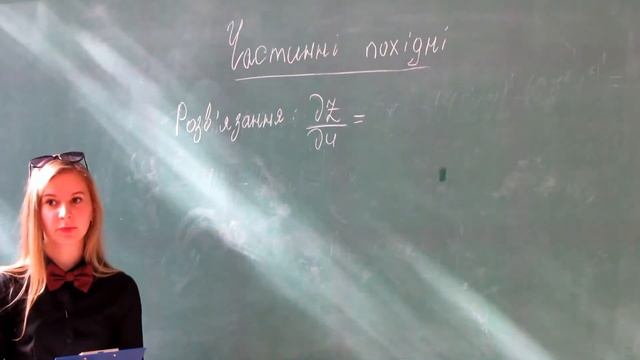 Частинні похідні
Розв'язання: ∂z/∂y =